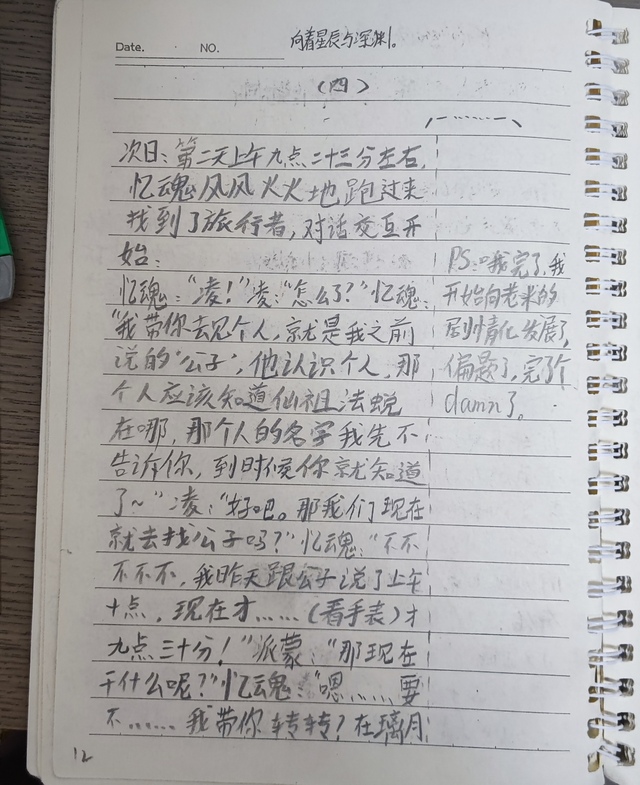 Date. NO. 向着星辰与深渊。
（四）
次日：第二天上午九点二十三分左右，
忆魂风风火火地跑过来
找到了旅行者，对话交互开
始：
忆魂：“凌！”凌：“怎么了？”忆魂：
“我带你去见个人，就是我之前
说的‘公子’，他认识个人，那
个人应该知道仙祖法蜕
在哪，那个人的名字我先不
告诉你，到时候你就知道
了～”凌：“好吧。那我们现在
就去找公子吗？”忆魂：“不不
不不不，我昨天跟公子说了上午
十点，现在才……（看手表）才
九点三十分！”派蒙：“那现在
干什么呢？”忆魂：“嗯……要
不……我带你转转？在璃月
PS：哦完了，我
开始向老米的
剧情化发展了，
偏题了，完了个
damn了。
12